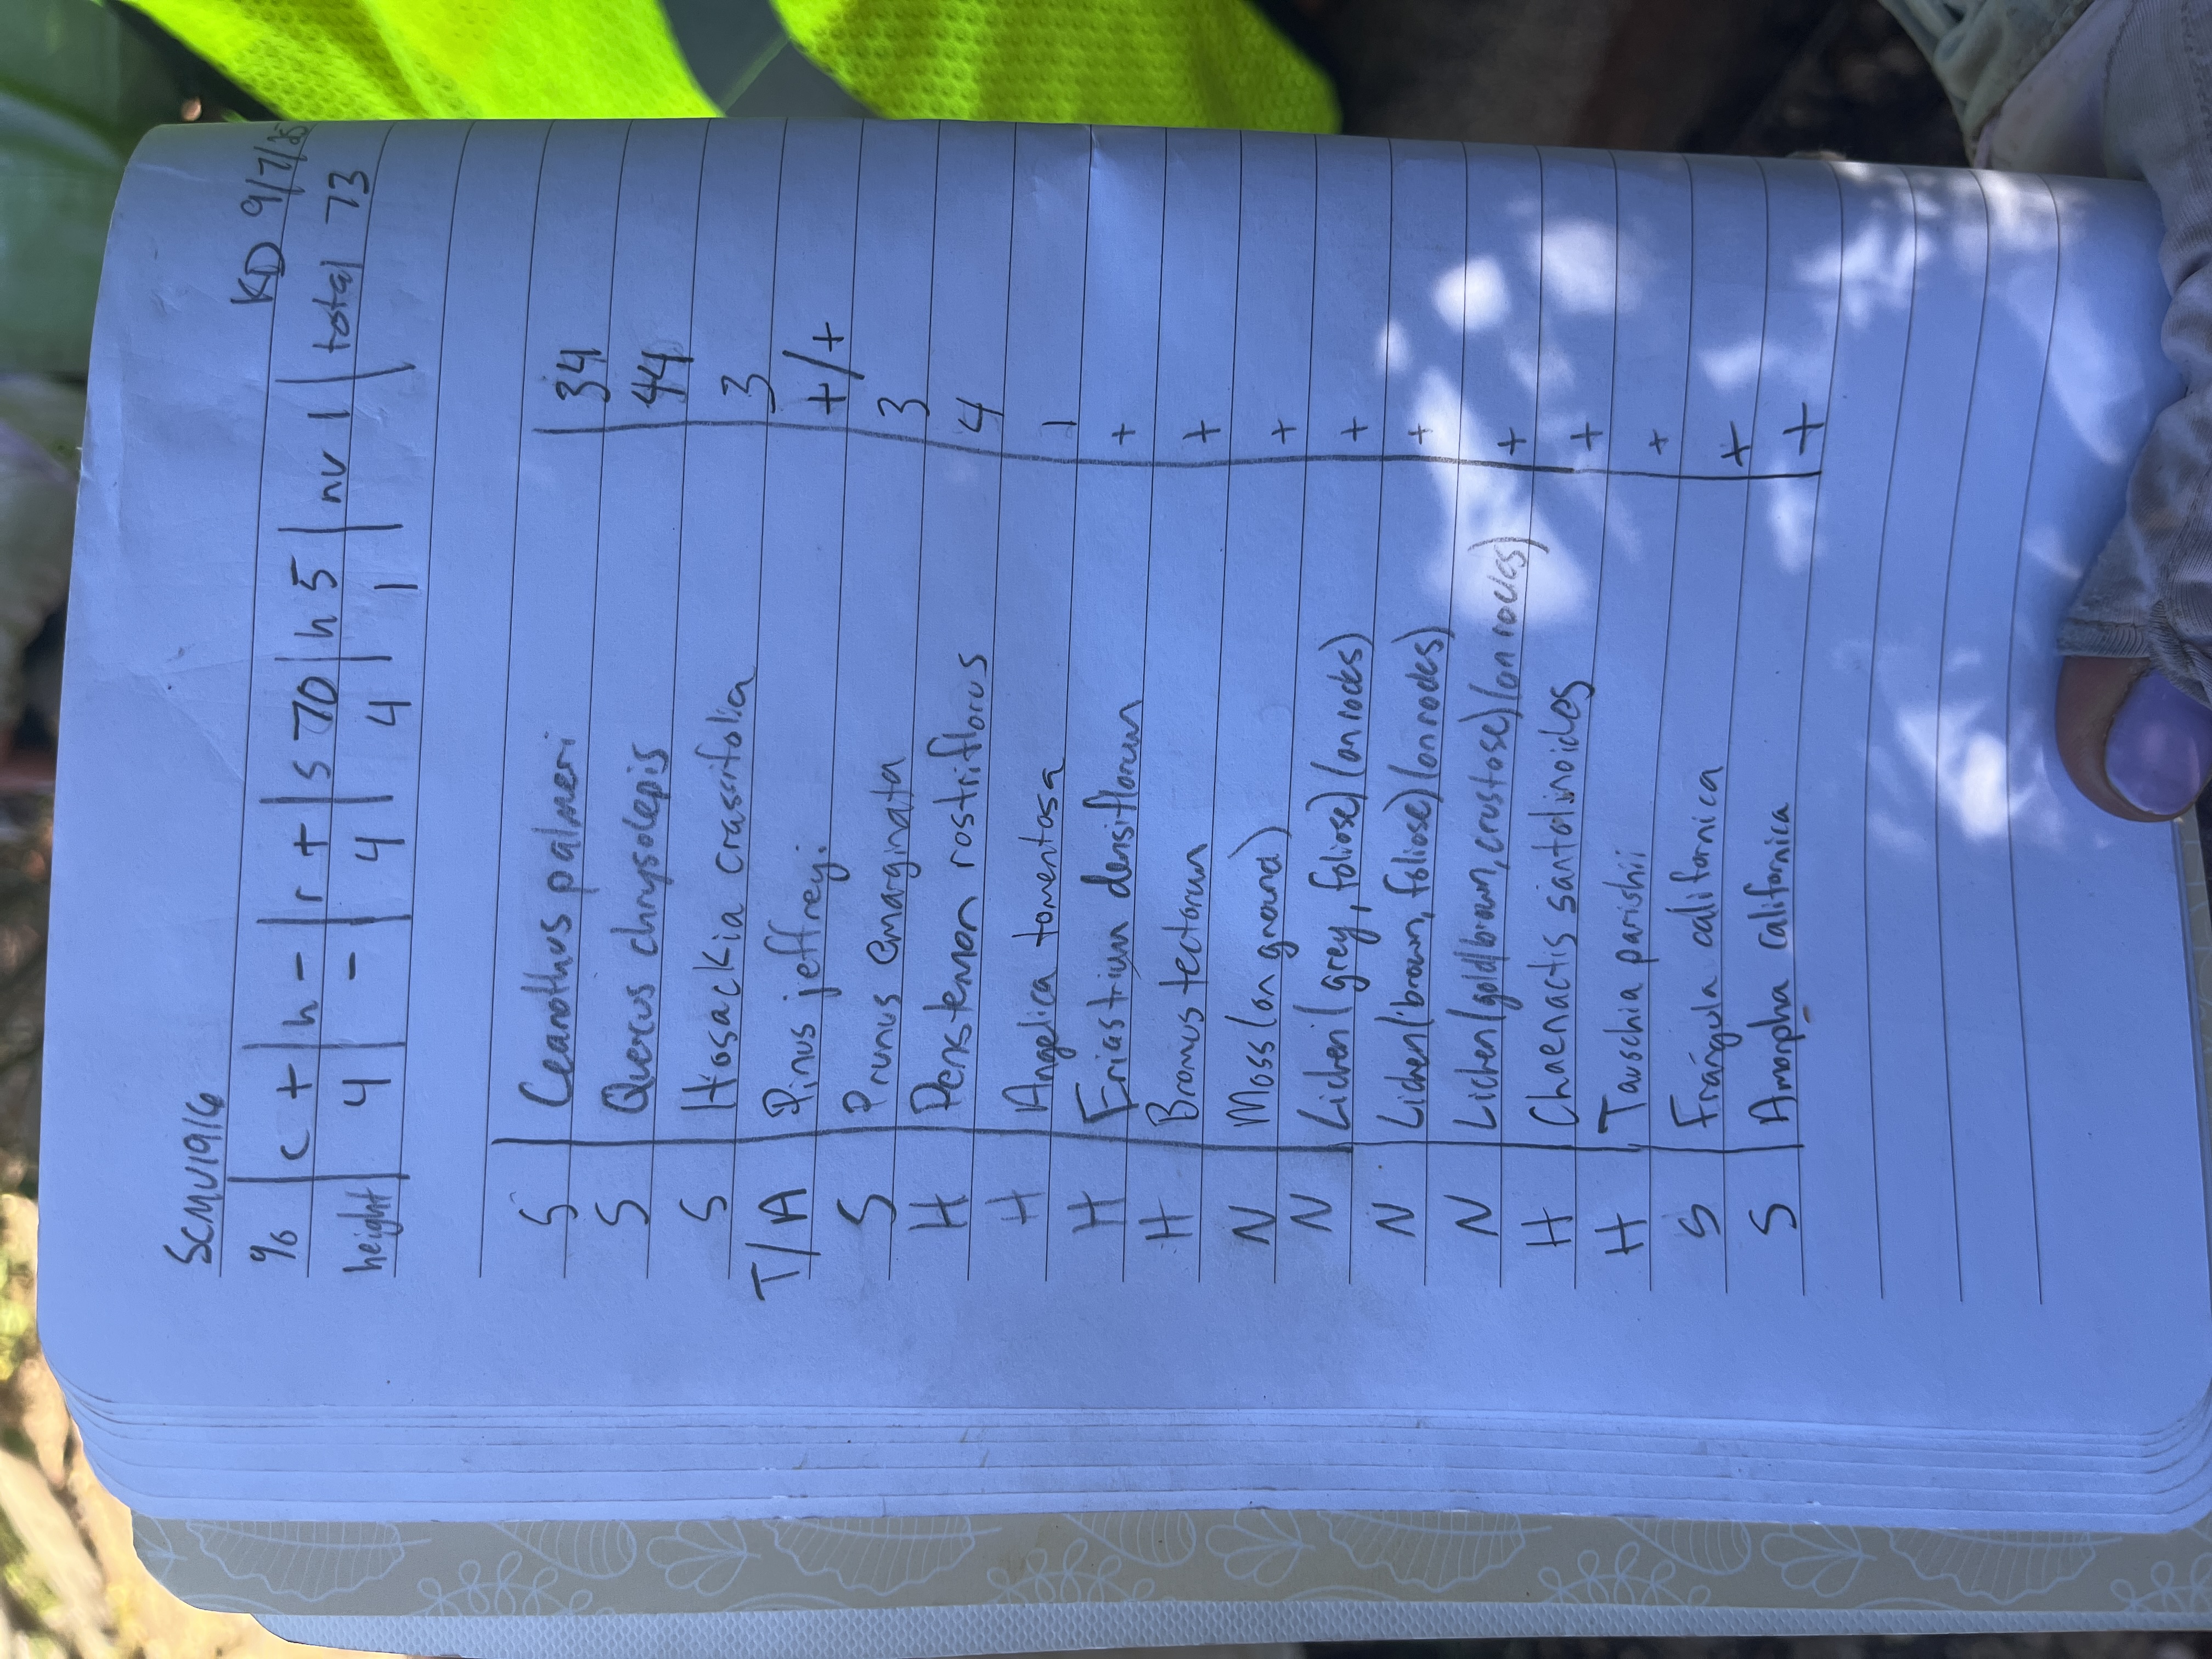 SCMV1916
KD 9/7/25
% | c + | h - | r + | s 70 | h 5 | nv 1 | total 73
height | 4 | - | 4 | 4 | 1
S | Ceanothus palmeri | 34
S | Quercus chrysolepis | 44
S | Hosackia crassifolia | 3
T/A | Pinus jeffreyi | +/+
S | Prunus emarginata | 3
H | Penstemon rostriflorus | 4
H | Angelica tomentosa | 1
H | Eriastrium densiflorum | +
H | Bromus tectorum | +
N | Moss (on ground) | +
N | Lichen (grey, foliose) (on rocks) | +
N | Lichen (brown, foliose) (on rocks) | +
N | Lichen (gold/brown, crustose) (on rocks) | +
H | Chaenactis santolinoides | +
H | Tauschia parishii | +
S | Frangula californica | +
S | Amorpha californica | +